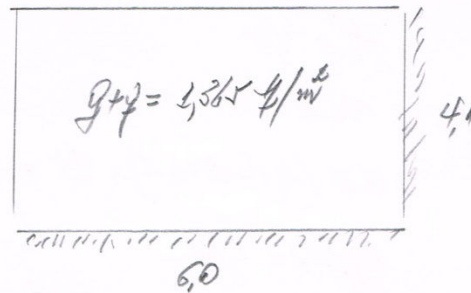 g+q = 1,365 t/m²
4,
6,0